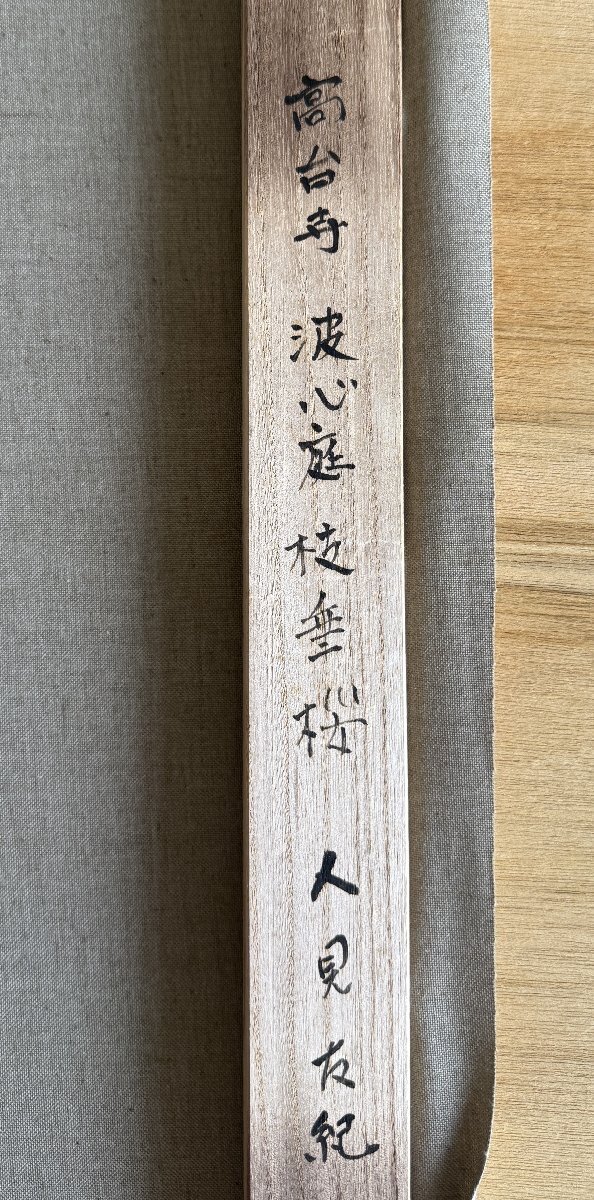 高台寺 波心庭 枝垂桜 人見友紀